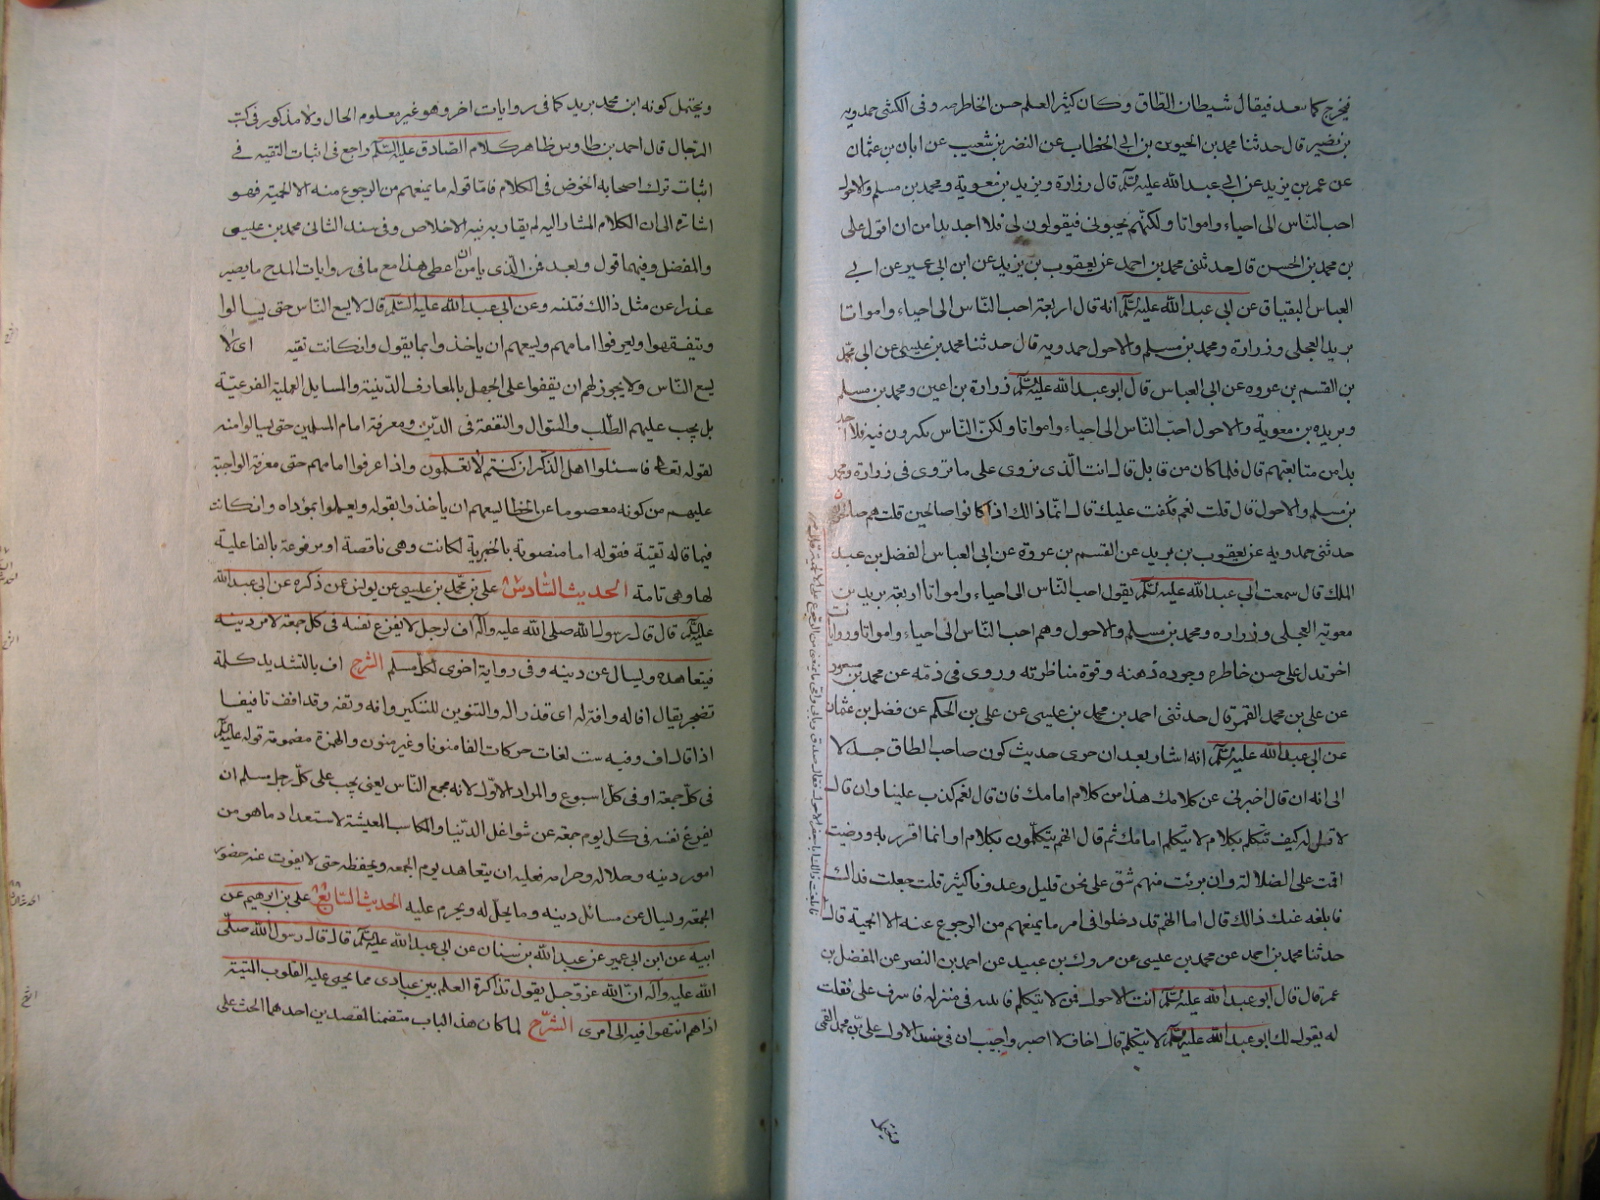 فيخرج كما سعد فيقال شيطان الطاق وكان كثير العلم حسن الخاطر وفى الكشى حمدويه
بن نصير قال حدثنا محمد بن الحسين بن ابى الخطاب عن النضر بن شعيب عن ابان بن عثمان
عن عمر بن يزيد عن ابى عبد الله عليه السلم قال زرارة وبريد بن معوية ومحمد بن مسلم والاحول
احب الناس الى احياء وامواتا ولكنهم يجيئونى فيقولون لى فلا اجد بدا من ان اقول على
بن محمد بن الحسن قال حدثنى محمد بن احمد عن يعقوب بن يزيد عن ابن ابى عمير عن ابى
العباس البقباق عن ابى عبد الله عليه السلم انه قال اربعة احب الناس الى احياء وامواتا
بريد العجلى وزرارة ومحمد بن مسلم والاحول حمدويه قال حدثنا محمد بن عيسى عن ابى محمد
بن القسم بن عروه عن ابى العباس قال ابو عبد الله عليه السلم زرارة بن اعين ومحمد بن مسلم
وبريده بن معوية والاحول احب الناس الى احياء وامواتا ولكن الناس يكبرون فيه فلا اجد
بدا من متابعتهم قال فلما كان من قابل قال انت الذى تروى على ما تروى فى زرارة ومحمد
بن مسلم والاحول قال قلت نعم فكذبت عليك قال انما ذالك اذا كانوا صالحين قلت هم صالحون
حدثنى حمدويه عن يعقوب بن يريد عن القسم بن عروة عن ابى العباس الفضل بن عبد
الملك قال سمعت ابى عبد الله عليه السلم يقول احب الناس الى احياء وامواتا اربعة بريد بن
معوية العجلى وزراره ومحمد بن مسلم والاحول وهم احب الناس الى احياء وامواتا وروايات
اخر تدل على حسن خاطره وجوده ذهنه وقوة مناظرته وروى فى ذمه عن محمد بن مسعود
عن على بن محمد القمى قال حدثنى احمد بن محمد بن عيسى عن على بن الحكم عن فضل بن عثمان
عن ابى عبد الله عليه السلم انه اشار بعد ان حوى حديث كون صاحب الطاق جدلا
الى انه ان قال اخبرنى عن كلامك هذا من كلام امامك فان قال نعم كذب علينا وان قال
لا قيل له كيف تتكلم بكلام لا يتكلم امامك ثم قال انهم يتكلمون بكلام او انما اقرر به ورضيت
اقمت على الضلالة وان برئت منهم شق على نحن قليل وعدونا كثير قلت جعلت فداك
فابلغه عنك ذالك قال اما انهم قد دخلوا فى امر ما يمنعهم من الرجوع عنه الا الحمية قال
حدثنا محمد بن احمد عن محمد بن عيسى عن مروك بن عبيد عن احمد بن النضر عن المفضل بن
عمر قال قال ابو عبد الله عليه السلم ائت الاحول فمره لا يتكلم فاتيته فى منزله فاشرف على فقلت
له يقول لك ابو عبد الله عليه السلم لا تتكلم قال اخاف لا اصبر واجيب ان فى سند الاول على بن محمد القمى
ويحتمل كونه ابن محمد بريد كما فى روايات اخر وهو غير معلوم الحال ولا مذكور فى كتب
الرجال قال احمد بن طاوس ظاهر كلام الصادق عليه السلم راجع فى اثبات التقيه فى
اثبات ترك اصحابه الخوض فى الكلام فاما قوله ما يمنعهم من الرجوع منه الا الحمية فهو
اشارة الى ان الكلام المشار اليه لم يقاربه نية الاخلاص وفى سند الثانى محمد بن عيسى
والمفضل وفيهما قول وبعد فمن الذى يامن ان اعطى هذا مع ما فى روايات المدح ما يصير
عذرا عن مثل ذالك فتلنه وعن ابى عبد الله عليه السلم قال لا يسع الناس حتى يسالوا
ويتفقهوا ويعرفوا امامهم ويسعهم ان ياخذوا بما يقول وان كانت تقيه اى لا
يسع الناس ولا يجوز لهم ان يقفوا على الجهل بالمعارف الدينية والمسايل العملية الفرعية
بل يجب عليهم الطلب والسؤال والتفقه فى الدين ومعرفة امام المسلمين حتى يسالوا منه
لقوله تعالى فاسئلوا اهل الذكر ان كنتم لا تعلمون واذا عرفوا امامهم حتى معرفة الواجبة
عليهم من كونه معصوما عن الخطا ليسعهم ان ياخذوا بقوله ويعملوا بمؤداه وان كانت
فيما قاله تقية فقوله اما منصوبة بالخبرية لكانت وهى ناقصة او مرفوعة بالفاعلية
لها وهى تامة الحديث السادس على بن محمد بن عيسى عن يونس عن ذكره عن ابى عبد الله
عليه السلم قال قال رسول الله صلى الله عليه وآله اف لرجل لا يفرغ نفسه فى كل جمعة لامر دينه
فيتعاهده ويسال عن دينه وفى رواية اخرى لكل مسلم الشرح اف بالتشديد كلمة
تضجر يقال اف له وافة له اى قذر له والتنوين للتنكير وافه وتفه وقد افف تافيفا
اذا قال اف وفيه ست لغات حركات الفا منونا وغير منون والهمزة مضمومة قوله عليه السلم
فى كل جمعة او فى كل اسبوع والمراد الاول لانه مجمع الناس يعنى يجب على كل رجل مسلم ان
يفرغ نفسه فى كل يوم جمعة عن شواغل الدنيا والمكاسب المعيشة لاستعداد ما هو من
امور دينه وحلاله وحرامه فعليه ان يتعاهد يوم الجمعه ويحفظه حتى لا يفوت عنه حضور
الجمعة ويسال عن مسائل دينه وما يحل له ويحرم عليه الحديث السابع على بن ابرهيم عن
ابيه عن ابن ابى عمير عن عبد الله بن سنان عن ابى عبد الله عليه السلم قال قال رسول الله صلى
الله عليه وآله ان الله عز وجل يقول تذاكرة العلم بين عبادى مما يحيى عليه القلوب الميتة
اذا هم انتهوا فيه الى امرى الشرح لما كان هذا الباب متضمنا لمقصدين احدهما الحث على